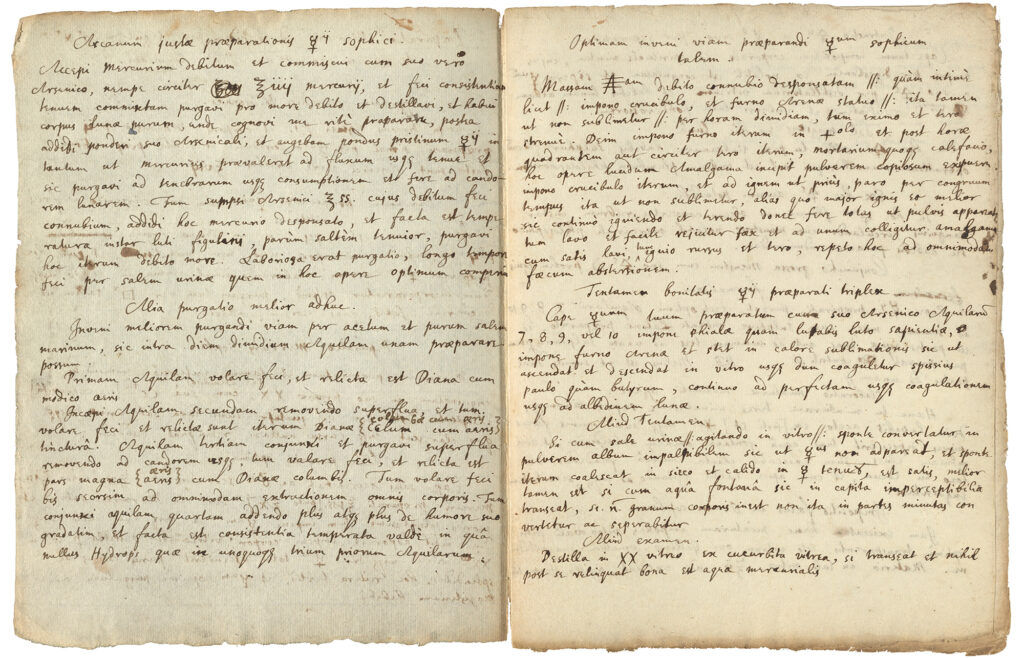 Arcanum justæ præparationis ☿ij sophici.
Accepi Mercurium debitum et commiscui cum suo vero
Arsenico, nempe circiter ʒiiij mercurij, et feci consistentiam
tenuem commixtam purgavi pro more debito et destillavi, et habui
corpus lunæ purum, unde cognovi me ritè præparasse, postea
addidi ponderi suo Arsenicali, et augebam pondus pristinum ☿ij in
tantum ut mercurius prævaleret ad fluxum usqꝫ tenue et
sic purgavi ad tenebrarum usqꝫ consumptionem et fere ad cando-
rem lunarem. Tum sumpsi Arsenici ʒss. cujus debitum feci
connubium, addidi hoc mercurio desponsato, et facta est tempe
ratura instar luti figularis, parùm saltèm tenuior, purgavi
hoc iterum debito more. Laboriosa erat purgatio, longo tempore
feci per salem urinæ quem in hoc opere optimum comperi
Alia purgatio melior adhuc.
Inveni meliorem purgandi viam per acetum et purum salem
marinum, sic intra diem dimidium Aquilam unam præparare
possum
Primam Aquilam volare feci, et relicta est Diana cum
modico æris
Incæpi Aquilam secundam removendo superflua, et tum
volare feci et relictæ sunt iterum Dianæ {columbæ cum æris}
{Celum cum aeris}
tincturâ. Aquilam tertiam conjunxi et purgavi superflua
removendo ad candorem usqꝫ tum valare feci, et relicta est
pars magna {æris} {aeris} cum Dianæ columbis. Tum volare feci
bis seorsim ad ommodam extractionem omnis corporis. Tum
conjunxi aquilam quartam addendo plus atqꝫ plus de humore suo
gradatim, et facta est consistentia temperata valdè in quâ
nullus Hydrops quæ in unoquoqꝫ trium priorum Aquilarum.
Optimam inveni viam præparandi ☿um sophicum
talem.
Massam Am debito connubio desponsatam //: quàm intime
licet //: impono crucibulo, et furno Arenæ statuo //: ita tamen
ut non sublimetur //: per horam dimidiam, tum eximo et tero
strenuè. Dein impono furno iterum in +olo et post horæ
quadrantem aut circiter tero iterum, mortariumqꝫ calefacio,
hoc opere lucidum Amalgama incepit pulverem copiosum expuere
impono crucibulo iterum, et ad ignem ut priùs, pro per congruum
tempus ita ut non sublimetur, alias quo major ignis eo melior
sic continuo igniendo et terendo donec fere totus ut pulvis apparet
tum lavo et facile rejicitur fæx et ad unum colligitur amalgama
cum satis lavi, tunc ignio rursus et tero, repeto hoc ad omnimodam
fæcum abstersionem.
Tentamen bonitatis ☿ij præparati triplex
Cape ☿um tuum præparatum cum suo Arsenico Aquilarum
7, 8, 9, vel 10 impone phialæ quam lutabis luto sapientiæ,
impone furno Arenæ et stet in calore sublimationis sic ut
ascendat et descendat in vitro usqꝫ dum coaguletur spissius
paulo quàm butyrum, continuo ad perfectam usqꝫ coagulationem
usqꝫ ad albedinem lunæ.
Aliud Tentamen.
Si cum sale urinæ //:agitando in vitro//: sponte convertatur in
pulverem album impalpibilem sic ut ☿us non adpareat, et sponte
iterum coalescat in sicco et calido in ☿ tenuē, est satis, melior
tamen est si cum aquâ fontanâ sic in capita imperceptibilia
transeat, si n̄ granum corporis inest non ita in partes minutas con
vertetur ac seperabitur
Aliud examen.
Destilla in XX vitreo ex cucurbita vitrea, si transeat et nihil
post se relinquat bona est aqua mercurialis